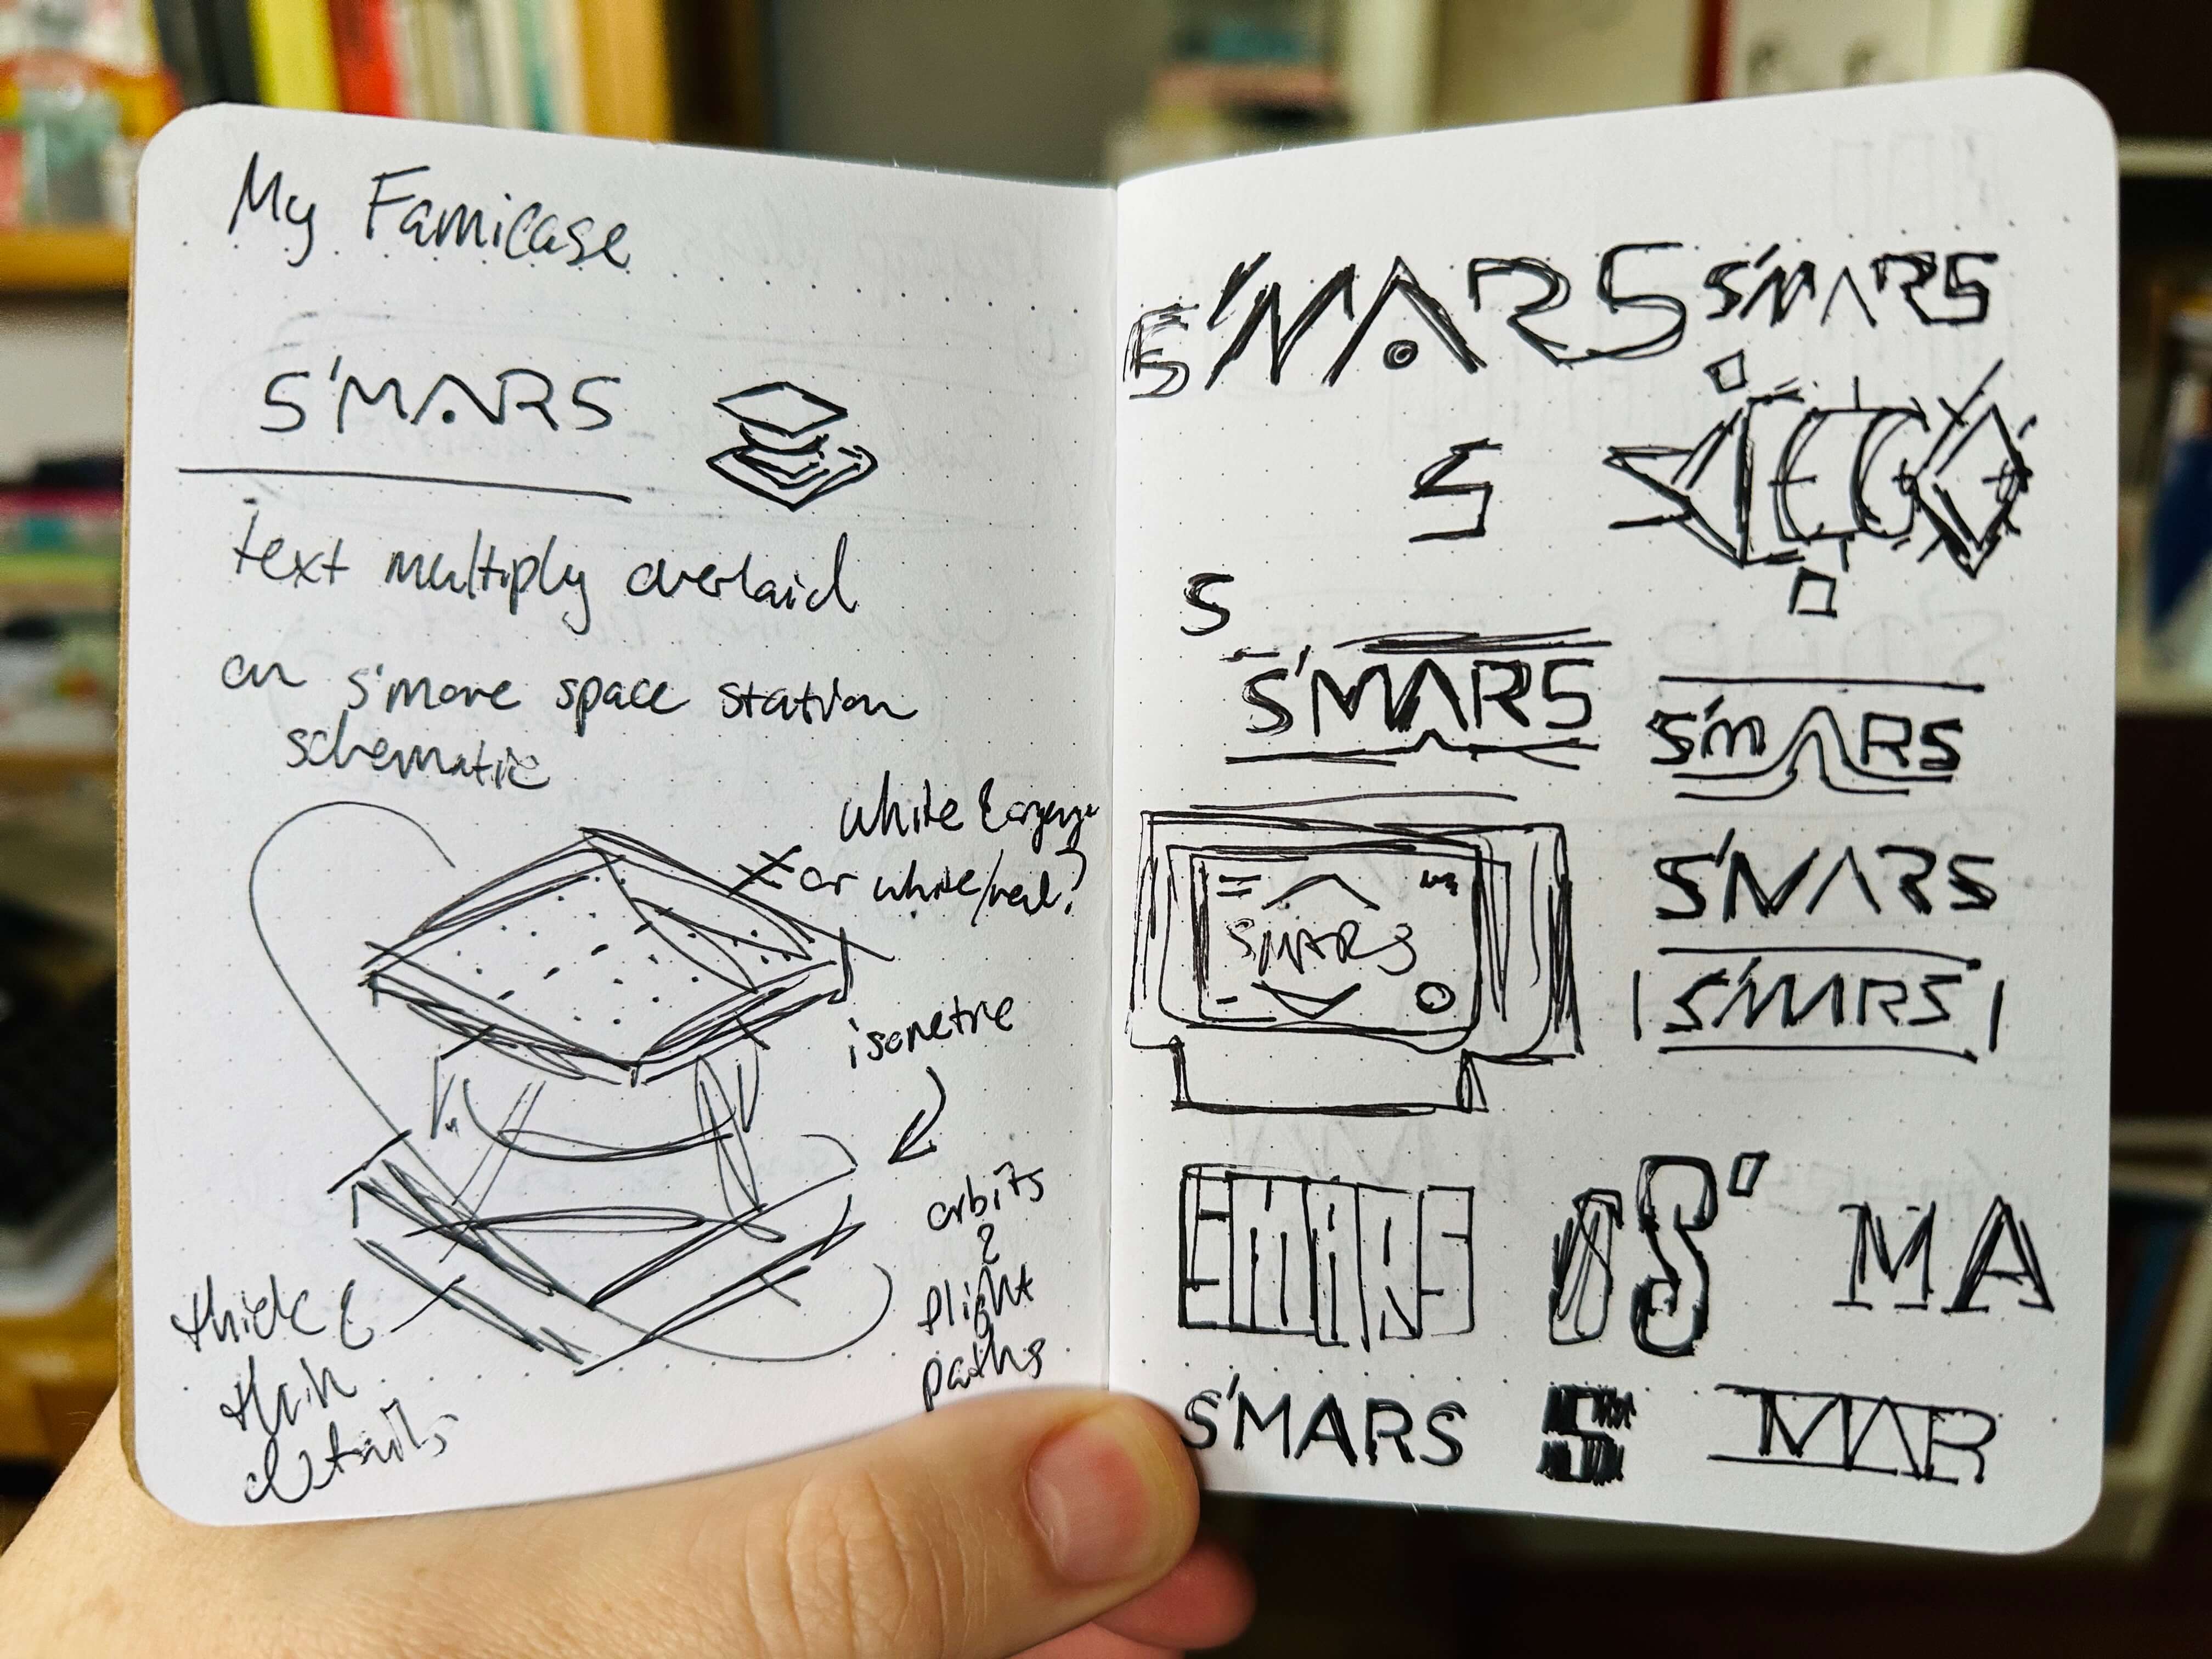 My Famicase
S'MARS
text multiply overlaid
on s'more space station
schematic
white & orange
or white/red?
isometric
orbits
&
flight
paths
thick &
thin
details
S'MARS
S'MARS
S
S
S'MARS
S'MARS
S'MARS
S'MARS
S'MARS
S'
MA
S'MARS
S
MAR